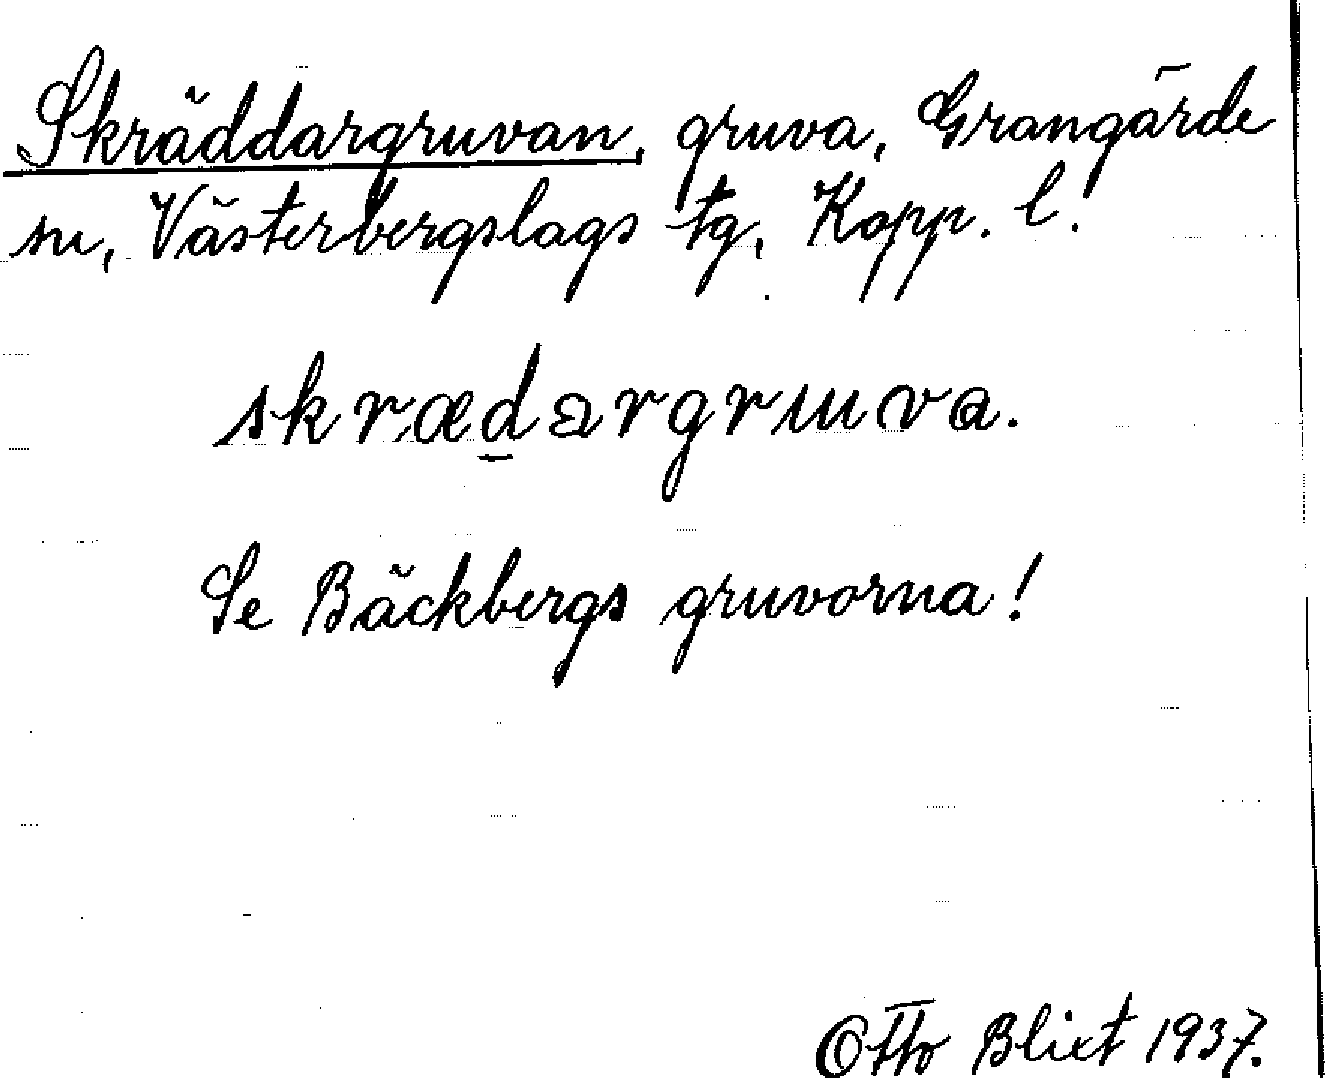 Skräddargruvan, gruva, Grangärde
sn, Västerbergslags tg, Kopp. l.
skrædargruva.
Se Bäckbergs gruvorna!
Otto Blixt 1937.